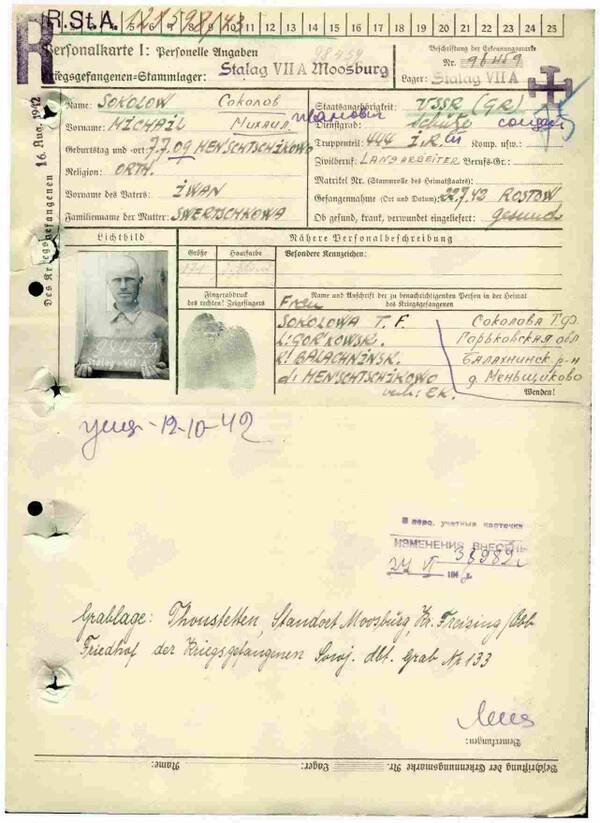 R.St.A. 
R
5 6 7 8 9 10 11 12 13 14 15 16 17 18 19 20 21 22 23 24 25
Personalkarte I: Personelle Angaben
Kriegsgefangenen-Stammlager: Stalag VII A Moosburg
Beschriftung der Erkennungsmarke
Nr. 98459
Lager: Stalag VII A
Des Kriegsgefangenen 16. Aug. 1942
Name: SOKOLOW Соколов
Vorname: MICHAIL Михаил Иванович
Geburtstag und -ort: 7.7.09 MENSCHTSCHIKOWO
Religion: ORTH.
Vorname des Vaters: IWAN
Familienname der Mutter: SWERTSCHKOWA
Staatsangehörigkeit: USSR (GR)
Dienstgrad: Schütze солдат
Truppenteil: 444 I.R. Komp. usw.:
Zivilberuf: LANDARBEITER Berufs-Gr.:
Matrikel Nr. (Stammrolle des Heimatstaates):
Gefangennahme (Ort und Datum): 22.7.42 ROSTOW
Ob gesund, krank, verwundet eingeliefert: gesund
Lichtbild
98459
Stalag VII A
Nähere Personalbeschreibung
Größe Haarfarbe
171
Besondere Kennzeichen:
Fingerabdruck
des rechten! Zeigefingers
Name und Anschrift der zu benachrichtigenden Person in der Heimat
des Kriegsgefangenen
Frau
SOKOLOWA T. F.
GORKOWSKI.
BALACHNINSK.
d. MENSCHTSCHIKOWO
verh.: EK.
Соколова Т.Ф.
Горьковская обл
Балахнинск. р-н
д. Меньщиково
Wenden!
-12-10-42
В перс. учетные карточки
ИЗМЕНЕНИЯ ВНЕСЕНЫ
Grablage: Thonstetten, Standort Moosburg, Kr. Freising/Obb
Friedhof der Kriegsgefangenen Sowj. Abt. Grab Nr 133
Bemerkungen:
Beschriftung der Erkennungsmarke Nr. Lager: Name: